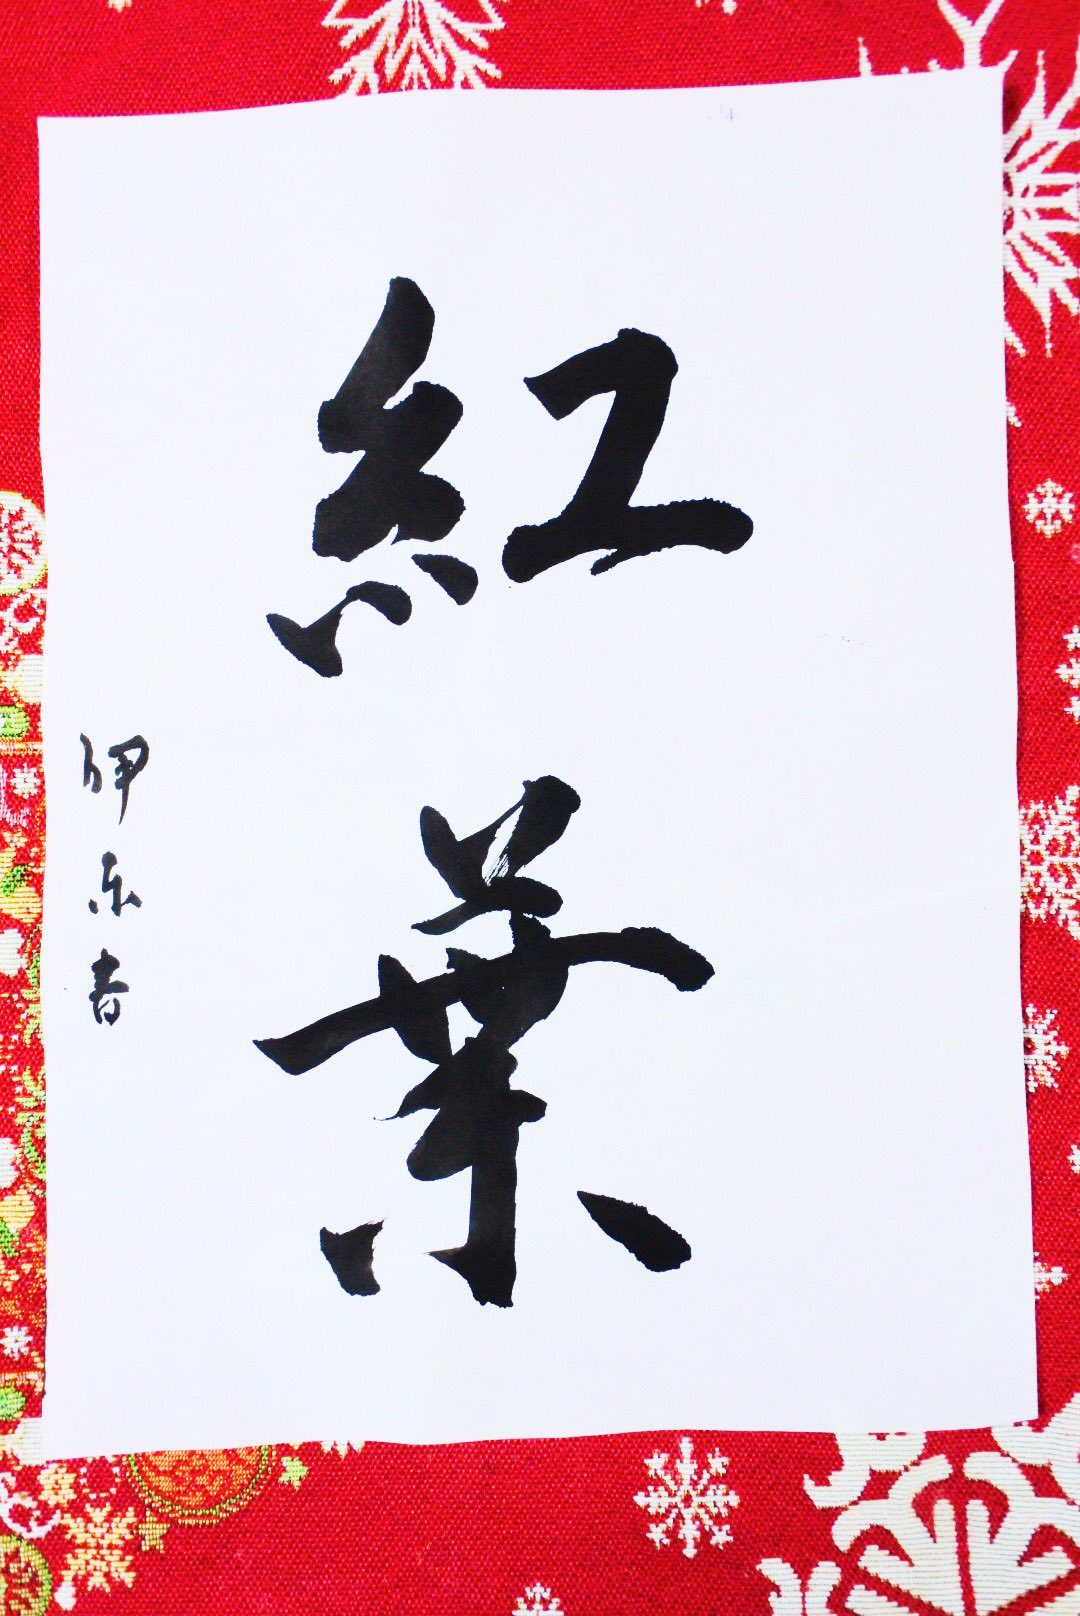 紅葉
伊樂書